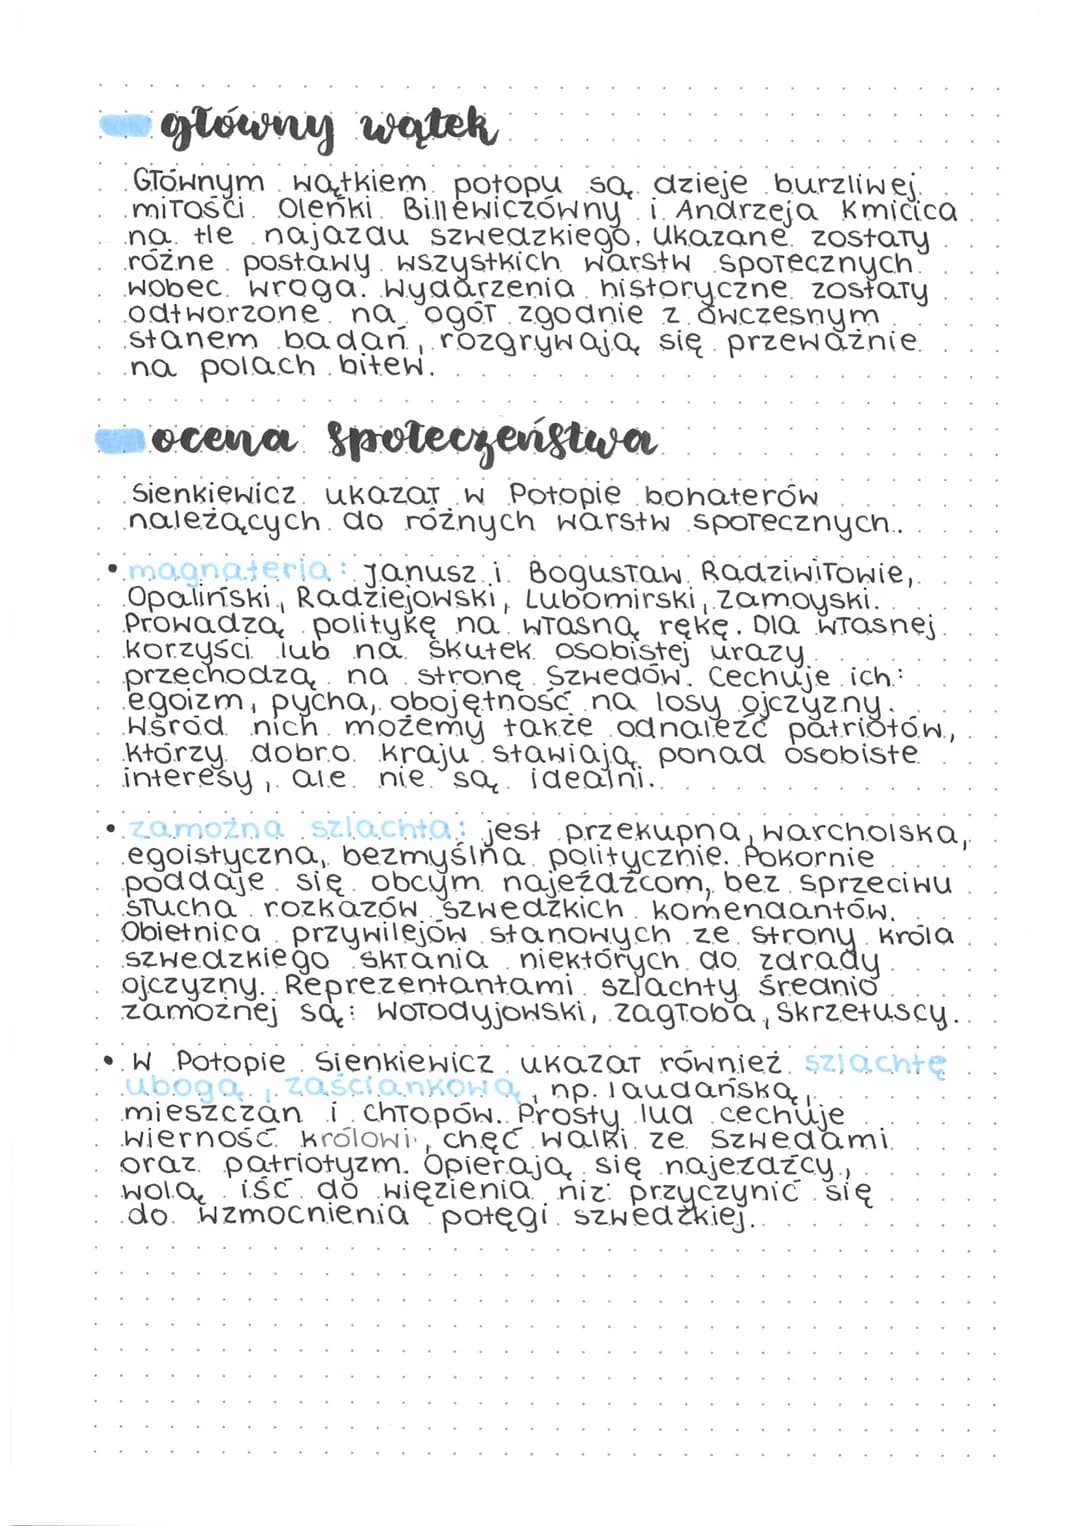 główny wątek
Głównym wątkiem potopu są dzieje burzliwej
miłości Oleńki Billewiczówny i Andrzeja Kmicica
na tle najazdu szwedzkiego. Ukazane zostały
różne postawy wszystkich warstw społecznych
wobec wroga. Wydarzenia historyczne zostały
odtworzone na ogół zgodnie z ówczesnym
stanem badań, rozgrywają się przeważnie
na polach bitew.
ocena społeczeństwa
Sienkiewicz ukazał w Potopie bohaterów
należących do różnych warstw społecznych.
• magnateria: Janusz i Bogusław Radziwiłłowie,
Opaliński, Radziejowski, Lubomirski, Zamoyski.
Prowadzą politykę na własną rękę. Dla własnej
korzyści lub na skutek osobistej urazy
przechodzą na stronę Szwedów. Cechuje ich:
egoizm, pycha, obojętność na losy ojczyzny.
Wśród nich możemy także odnaleźć patriotów,
którzy dobro kraju stawiają ponad osobiste
interesy, ale nie są idealni.
• zamożna szlachta: jest przekupna, warcholska,
egoistyczna, bezmyślna politycznie. Pokornie
poddaje się obcym najeźdźcom, bez sprzeciwu
słucha rozkazów szwedzkich komendantów.
Obietnica przywilejów stanowych ze strony króla
szwedzkiego skłania niektórych do zdrady
ojczyzny. Reprezentantami szlachty średnio
zamożnej są: Wołodyjowski, Zagłoba, Skrzetuscy.
• W Potopie Sienkiewicz ukazał również szlachtę
ubogą, zaściankową, np. laudańską,
mieszczan i chłopów. Prosty lud cechuje
wierność królowi, chęć walki ze Szwedami
oraz patriotyzm. Opierają się najeźdźcy,
wolą iść do więzienia niż przyczynić się
do wzmocnienia potęgi szwedzkiej.